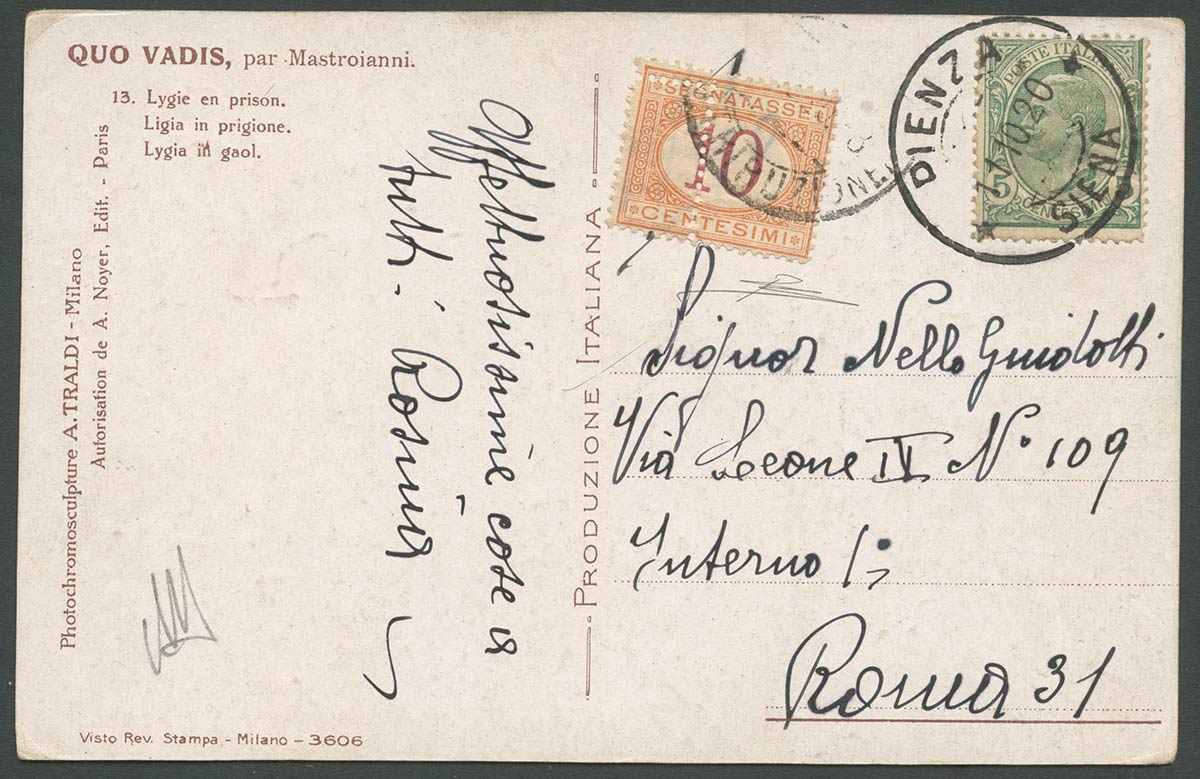 QUO VADIS, par Mastroianni.
13. Lygie en prison.
Ligia in prigione.
Lygia in gaol.
Photochromosculpture A. TRALDI - Milano
Autorisation de A. Noyer, Edit. - Paris
Affettuosissime cose a
tutti. Rosina
PRODUZIONE ITALIANA
SEGNATASSE
10
CENTESIMI
PIENZA
SIENA
10.20
POSTE ITAL
5
CEN
Signor Nello Guidotti
Via Leone IV N° 109
Interno
Roma 31
Visto Rev. Stampa - Milano - 3606